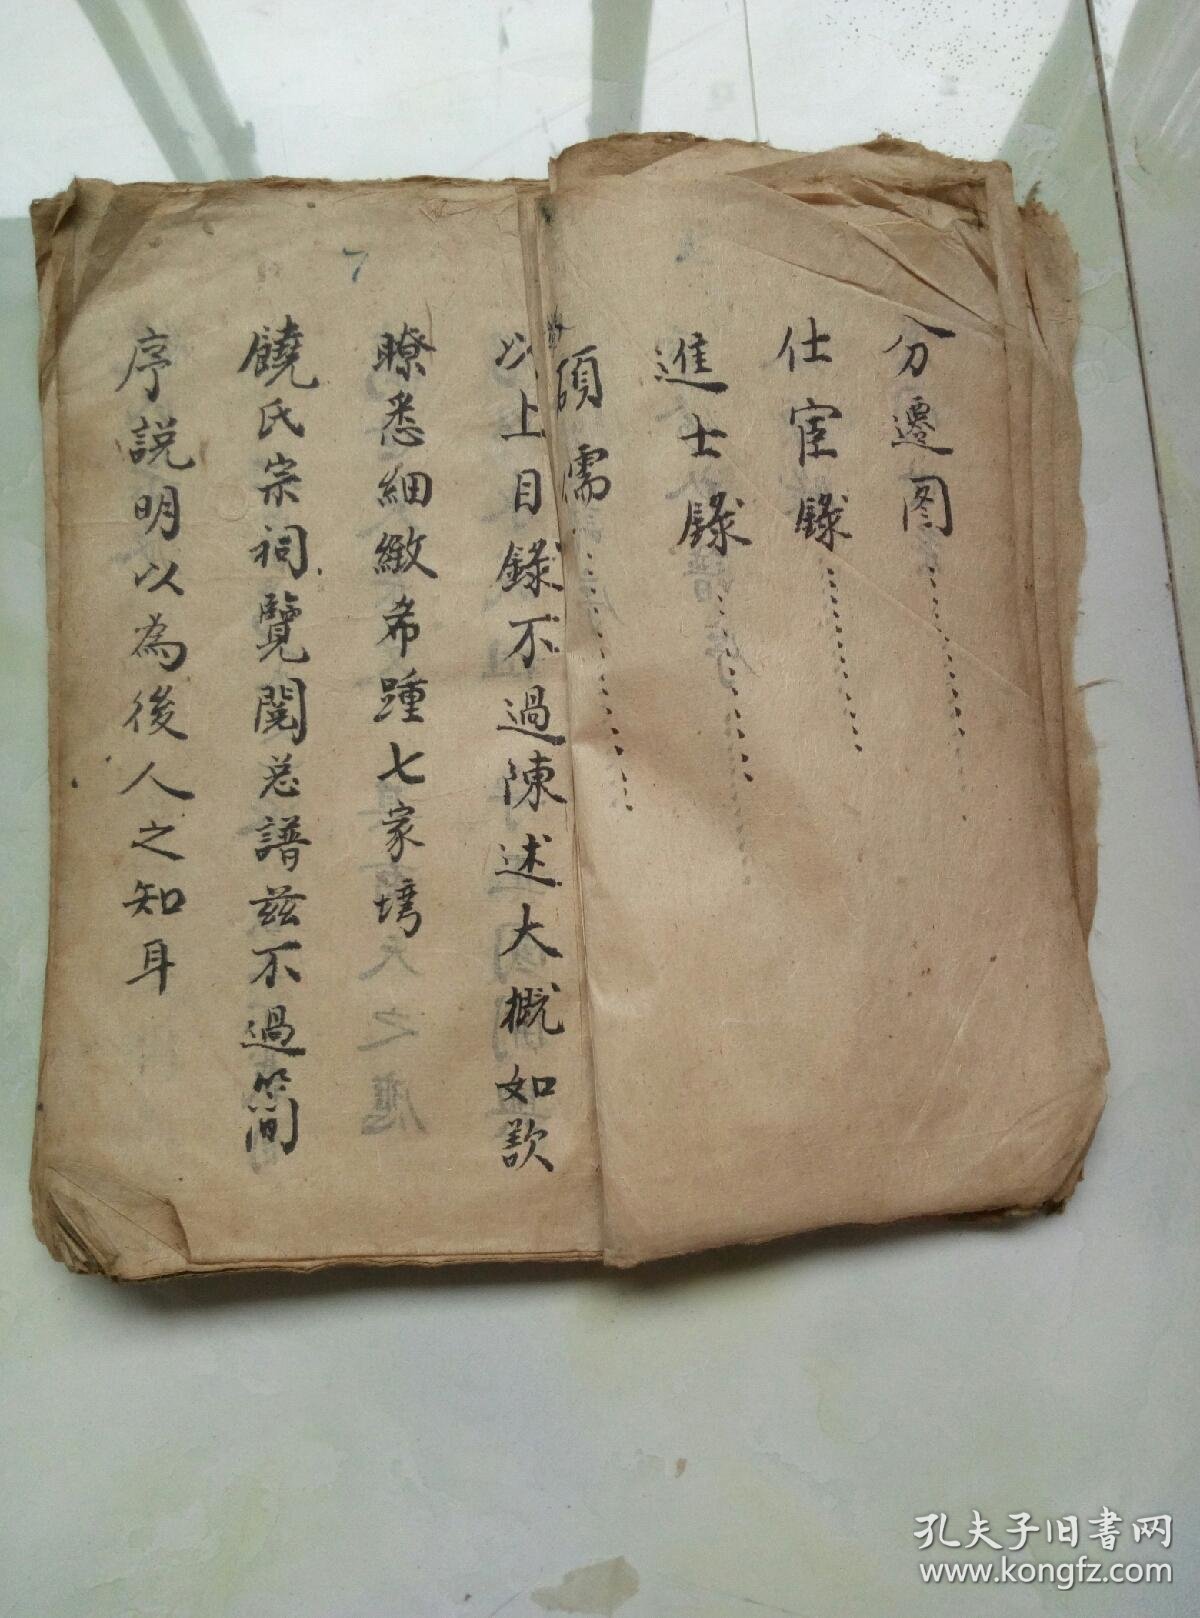 分遷图
仕宦錄
進士錄
碩儒
以上目錄不過陳述大概如欲
瞭悉細緻希踵七家塆
饒氏宗祠覽閱总譜兹不過簡
序説明以為後人之知耳
7
孔夫子旧書网
www.kongfz.com